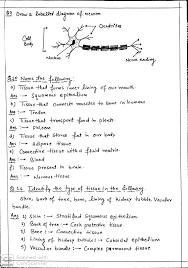 Q9 Draw a labelled diagram of neuron
Dendrites
Cell
Body
Nucleus
Nerve ending
Name the following.
a) Tissue that forms inner lining of our mouth.
Ans :→ Squamous epithelium
b) Tissue that connects muscles to bone in humans
Ans :→ Tendon
c) Tissue that transport food in plant.
Ans :→ Phloem
d) Tissue that stores fat in our body
Ans :→ Adipose tissue
e) Connective tissue with a fluid matrix.
Ans :→ Blood
f) Tissue present in brain
Ans :→ Nervous tissue.
Identify the type of tissue in the following
Skin, bark of tree, bone, lining of kidney tubule, Vascular
bundle.
Ans 1) Skin : Stratified squamous epithelium
2) Bark of tree → Cork protective tissue
3) Bone : → Connective tissue
4) Lining of kidney tubules : Cuboidal epithelium
5) Vascular bundle : → Complex permanent tissue
Scanned with
CamScanner